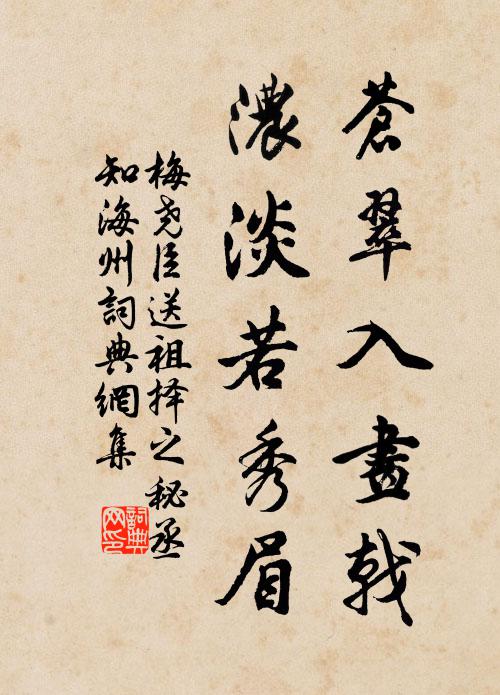 蒼翠入畫戟
濃淡若秀眉
梅尧臣送祖择之秘丞
知海州詞典網集
詞典
网印